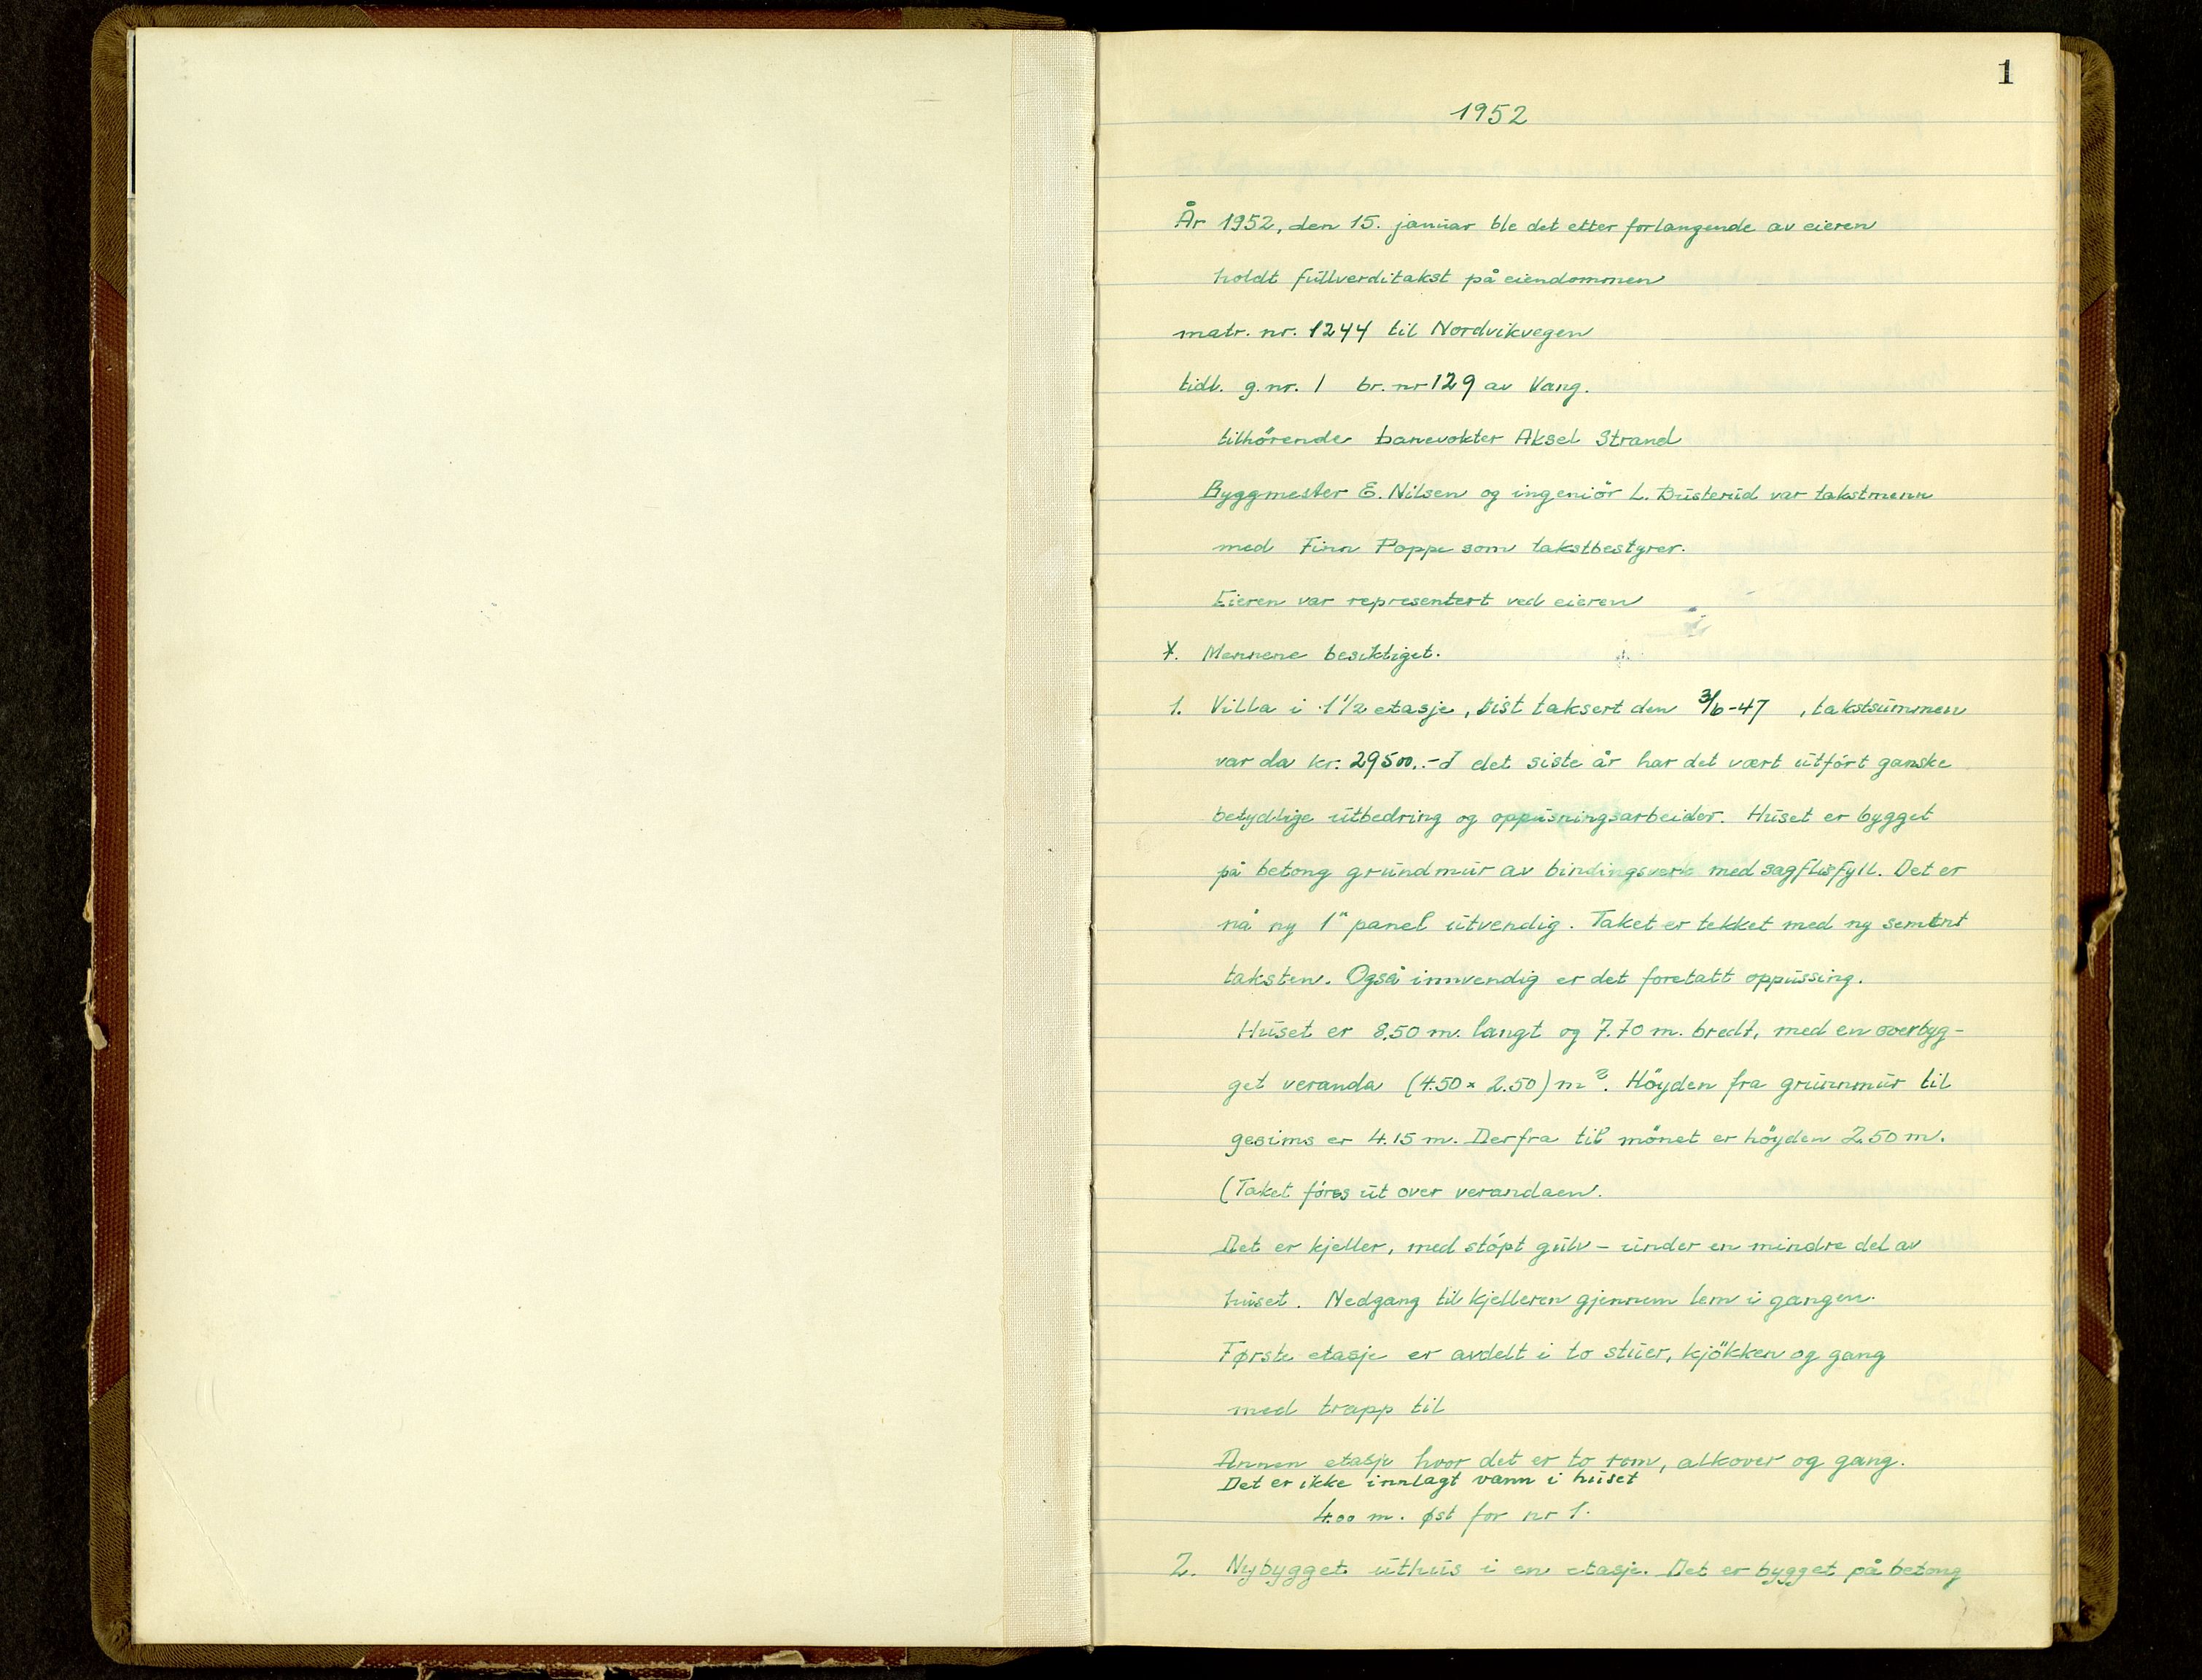 1
1952
År 1952, den 15. januar ble det etter forlangende av eieren
holdt fullverditakst på eiendommen
matr. nr. 1244 til Nordvikvegen
tidl. g.nr. 1 br. nr 129 av Vang.
tilhörende banevokter Aksel Strand
Byggmester E. Nilsen og ingeniör L. Busterud var takstmenn
med Finn Poppe som takstbestyrer.
Eieren var representert ved eieren
Mennene besiktiget.
1. Villa i 1 1/2 etasje, sist taksert den 3/6-47 , takstsummen
var da kr. 29500.- I det siste år har det vært utfört ganske
betydlige utbedring og oppusningsarbeider. Huset er bygget
på betong grundmur av bindingsverk med sagflisfyll. Det er
nå ny 1" panel utvendig. Taket er tekket med ny sement
taksten. Også innvendig er det foretatt oppussing.
Huset er 8.50 m. langt og 7.70 m. bredt, med en overbyg-
get veranda (4.50 x 2.50) m². Höyden fra grunnmur til
gesims er 4.15 m. Derfra til mönet er höyden 2.50 m.
(Taket föres ut over verandaen.
Det er kjeller, med stöpt gulv - under en mindre del av
huset. Nedgang til kjelleren gjennem lem i gangen.
Første etasje er avdelt i to stuer, kjökken og gang
med trapp til
Annen etasje hvor det er to rom, alkover og gang.
Det er ikke innlagt vann i huset
4.00 m. øst for nr 1.
2. Nybygget uthus i en etasje. Det er bygget på betong